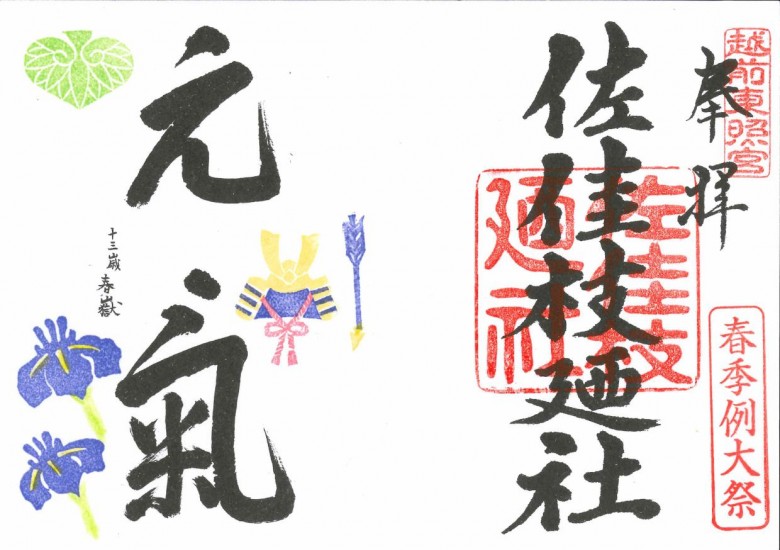 越前東照宮
奉拝
春季例大祭
佐佳枝廼社
佐佳枝
廼社
元氣
十三歳 春嶽